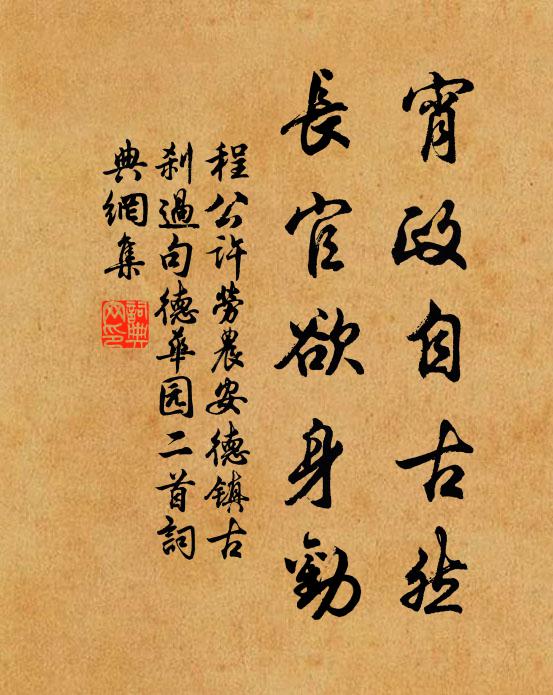 宵政自古然
長官欲身勸
程公許勞農安德鎮古
剎過句德華园二首詞
典網集
詞典